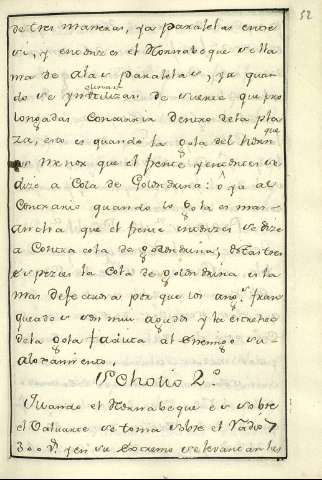 52
de tres maneras, ya paralelas entre
si, y entonzes el Hornabeque se lla
ma de alas paralelas, ya quan
do se de suerte que pro
longadas concurria dentro de la pla
za, esto es quando la gola del horn
es menor que el frente, y entonces se
dize a Cola de Golondrina: o ya al
Contrario quando la gola es mas
ancha que el frente entonzes se dize
a Contra cola de golondrina; destas tres
espezies la Cola de golondrina es la
mas defectuosa por que los ang.s fran
queados son mui agudos y la estrechez
de la gola al Enemigo su
alozamiento.
Schoiio 2.º
Quando el Hornabeque es sobre
el Valuarte se toma sobre el Radio 7
300 y en su extremo se levantan las